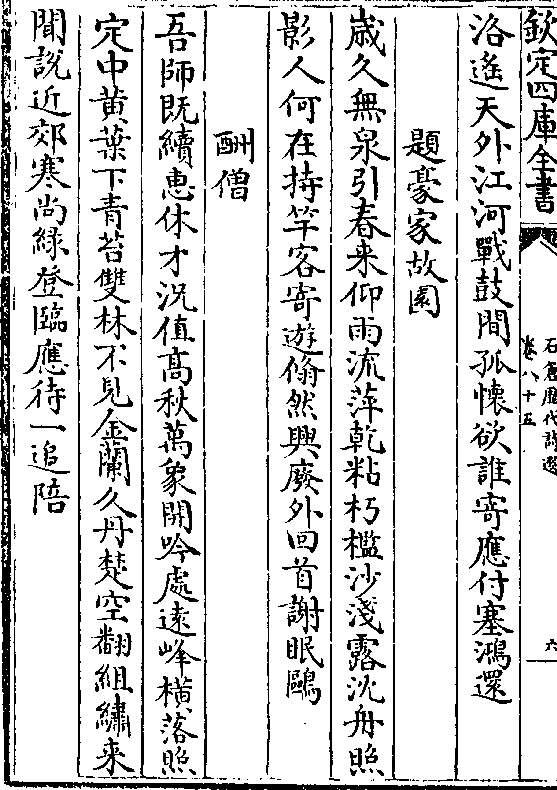 欽定四庫全書
石倉歴代詩選
卷八十五
六
洛遙天外江河戰鼓間孤懷欲誰寄應付塞鴻還
題豪家故園
歳久無泉引春来仰雨流萍乾粘朽檻沙淺露沈舟照
影人何在持竿客寄遊翛然興廢外回首謝眠鷗
酬僧
吾師既續惠休才況值高秋萬象開吟處遠峰橫落照
定中黄葉下青苔雙林不見金蘭久丹楚空翻組繡来
聞說近郊寒尚緑登臨應待一追陪